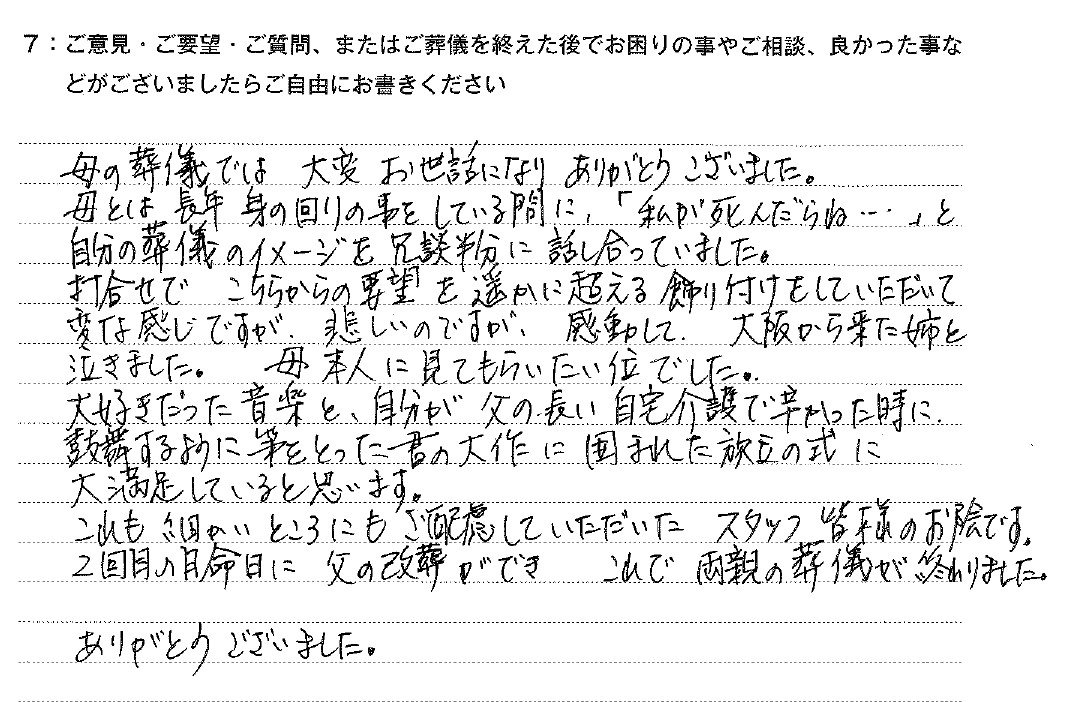 7：ご意見・ご要望・ご質問、またはご葬儀を終えた後でお困りの事やご相談、良かった事な
どがございましたらご自由にお書きください
母の葬儀では 大変 お世話になり ありがとうございました。
母とは 長年 身の回りの事をしている間に、「私が死んだらね…」と
自分の葬儀のイメージを 冗談半分に 話し合っていました。
打合せで こちらからの要望を遥かに超える飾り付けをしていただいて
変な感じですが、悲しいのですが、感動して、大阪から来た姉と
泣きました。 母本人に見てもらいたい位でした。
大好きだった音楽と、自分が 父の長い自宅介護で辛かった時に、
鼓舞するように筆をとった 君の大作に囲まれた 旅立の式に
大満足していると思います。
これも 細かいところにも ご配慮していただいた スタッフ皆様のお陰です。
2回目の月命日に 父の改葬ができ これで 両親の葬儀が終わりました。
ありがとうございました。